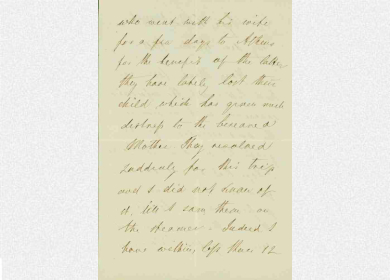 who went with his wife
for a few days to Athens
for the benefit of the latter
they have lately lost their
child which has given much
distress to the bereaved
Mother They resolved
suddenly for this trip
and I did not hear of
it till I saw them on
the steamer. Indeed I
have nothing less than 12